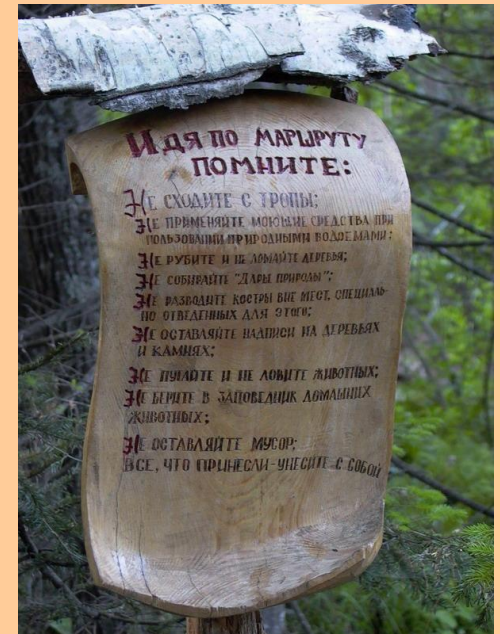 Идя по маршруту
помните:
Не сходите с тропы;
Не применяйте моющие средства при
пользовании природными водоемами;
Не рубите и не ломайте деревья;
Не собирайте "Дары природы";
Не разводите костры вне мест, специаль-
но отведенных для этого;
Не оставляйте надписи на деревьях
и камнях;
Не пугайте и не ловите животных;
Не берите в заповедник домашних
животных;
Не оставляйте мусор;
Все, что принесли-унесите с собой